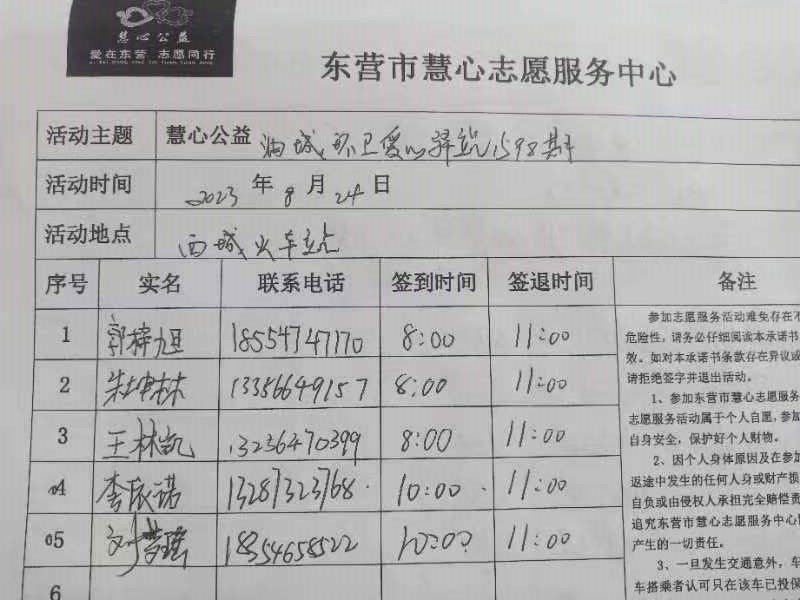 慧心公益
爱在东营 志愿同行
东营市慧心志愿服务中心
活动主题 慧心公益 油城环卫爱心驿站1598期
活动时间 2023年8月24日
活动地点 西城火车站
序号 实名 联系电话 签到时间 签退时间 备注
1 郭梓旭 18554747170 8:00 11:00
2 朱坤林 13356649157 8:00 11:00
3 王林凯 13236470399 8:00 11:00
04 李振诺 13287323768 10:00 11:00
05 刘梦瑶 18354658522 10:00 11:00
6
参加志愿服务活动难免存在不
危险性，请务必仔细阅读本承诺书
效。如对本承诺书条款存在异议或
请拒绝签字并退出活动。
1、参加东营市慧心志愿服务
志愿服务活动属于个人自愿，参加
自身安全，保护好个人财物。
2、因个人身体原因及在参加
返途中发生的任何人身或财产损
自负或由侵权人承担完全赔偿责
追究东营市慧心志愿服务中心
产生的一切责任。
3、一旦发生交通意外，车
车搭乘者认可只在该车已投保